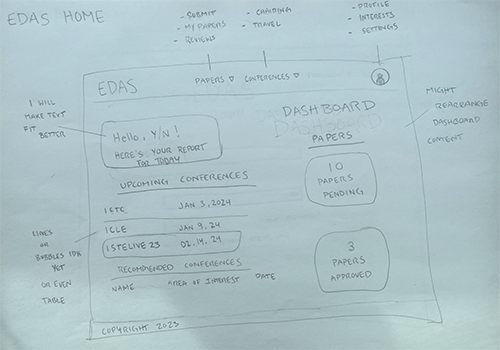 EDAS HOME
- SUBMIT
- MY PAPERS
- REVIEWS
- CHAIRING
- TRAVEL
- PROFILE
- INTERESTS
- SETTINGS
EDAS
PAPERS ▽ CONFERENCES ▽
I WILL
MAKE TEXT
FIT
BETTER
Hello, Y/N!
HERE'S YOUR REPORT
FOR TODAY
DASHBOARD
PAPERS
10
PAPERS
PENDING
3
PAPERS
APPROVED
MIGHT
REARRANGE
DASHBOARD
CONTENT
UPCOMING CONFERENCES
IETC JAN 3, 2024
ICLE JAN 9, 24
ISTELIVE 23 02.14.24
RECOMMENDED CONFERENCES
NAME AREA OF INTEREST DATE
LINES
OR
BUBBLES IDK
YET
OR EVEN
TABLE
COPYRIGHT 2023